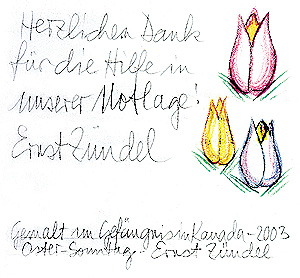 Herzlichen Dank
für die Hilfe in
unserer Notlage!
Ernst Zündel
Gemalt im Gefängnis in Kanada - 2003
Oster-Sonntag - Ernst Zündel